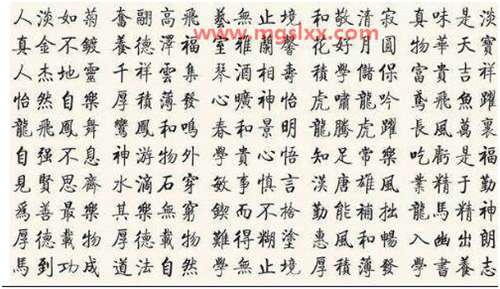 www.mgslxx.com
人淡如菊 奮翮高飛 藝無止境 和敬清寂 真味是淡
真金不鍍 養德澤福 室雅蘭馨 花好月圓 物華天寶
人杰地靈 千祥雲集 琴酒壽 積學儲保 富貴吉祥
怡然自樂 厚積薄發 心曠神怡 虎嘯龍吟 鳶飛魚躍
龍飛鳳舞 鸞鳳和鳴 春和景明 龍騰虎躍 長風萬裏
自强不息 神游物外 學貴心悟 知足常樂 吃虧是福
見賢思齊 水滴石穿 敏事慎言 漢唐雄風 業精于勤
爲善最樂 其樂無窮 鍥而不捨 勤能補拙 龍馬精神
厚德載物 厚德載物 難得糊塗 惠風和暢 入幽出朗
馬到功成 道法自然 學無止境 厚積薄發 學書養志